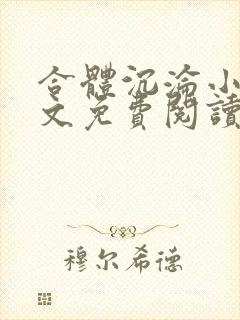 合體沉淪小
文免費閱讀
穆尔希德